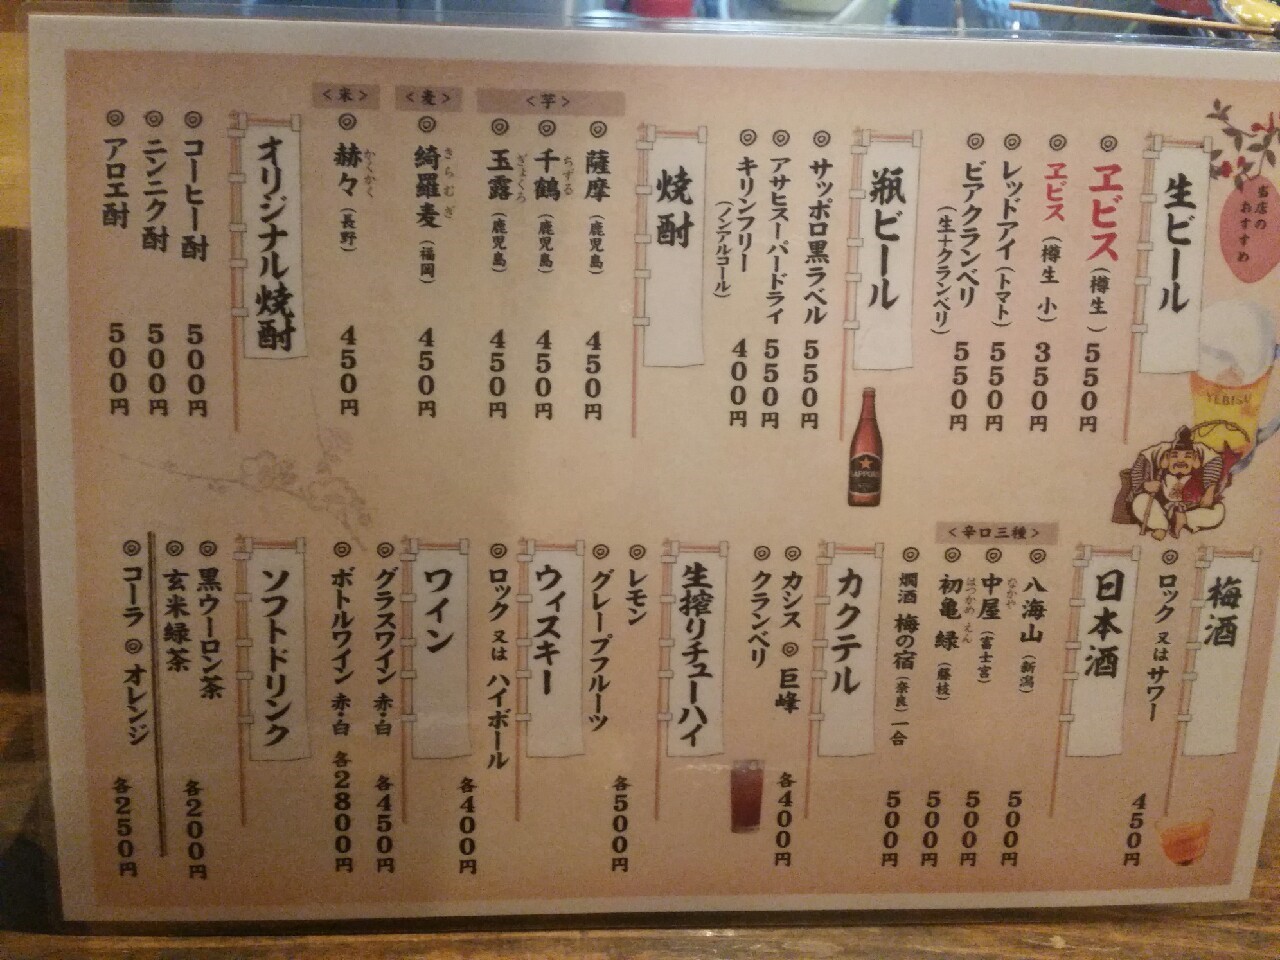 当店の
おすすめ
生ビール
◎ヱビス(樽生)550円
◎ヱビス(樽生 小)350円
◎レッドアイ(トマト)550円
◎ビアクランベリ(生+クランベリ)550円
YEBISU
瓶ビール
◎サッポロ黒ラベル550円
◎アサヒスーパードライ550円
◎キリンフリー(ノンアルコール)400円
SAPPORO
焼酎
<芋>
◎薩摩(鹿児島)450円
◎千鶴(鹿児島)450円
ちづる
◎玉露(鹿児島)450円
ぎょくろ
<麦>
◎綺羅麦(福岡)450円
きらむぎ
<米>
◎赫々(長野)450円
かくかく
オリジナル焼酎
◎コーヒー酎500円
◎ニンニク酎500円
◎アロエ酎500円
梅酒
◎ロック又はサワー450円
日本酒
<辛口三種>
◎八海山(新潟)500円
◎中屋(富士宮)500円
なかや
◎初亀 緑(藤枝)500円
はつかめ えん
◎燗酒 梅の宿(奈良)一合500円
カクテル
◎カシス◎巨峰
◎クランベリ
各400円
生搾りチューハイ
◎レモン
◎グレープフルーツ
各500円
ウィスキー
◎ロック又はハイボール各400円
ワイン
◎グラスワイン 赤・白各450円
◎ボトルワイン 赤・白各2800円
ソフトドリンク
◎黒ウーロン茶
◎玄米緑茶
各200円
◎コーラ◎オレンジ各250円